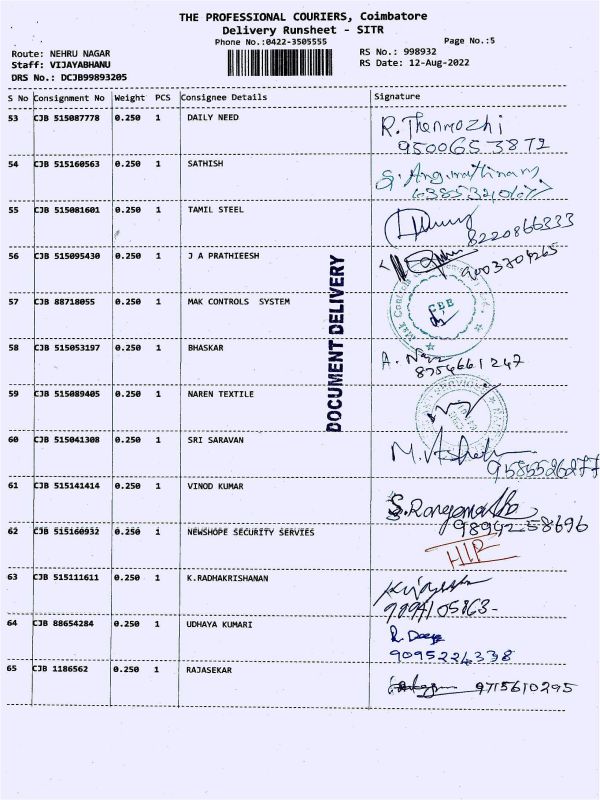 THE PROFESSIONAL COURIERS, Coimbatore
Delivery Runsheet - SITR
Phone No.:0422-3505555
Page No.:5
Route: NEHRU NAGAR
RS No.: 998932
Staff: VIJAYABHANU
RS Date: 12-Aug-2022
DRS No.: DCJB99893205
S No Consignment No Weight PCS Consignee Details Signature
53 CJB 515087778 0.250 1 DAILY NEED R. Thenmozhi
9500653872
54 CJB 515160563 0.250 1 SATHISH
55 CJB 515081601 0.250 1 TAMIL STEEL
8220866333
56 CJB 515095430 0.250 1 J A PRATHIEESH
9003704265
57 CJB 88718055 0.250 1 MAK CONTROLS SYSTEM
CBE
DOCUMENT DELIVERY
58 CJB 515053197 0.250 1 BHASKAR A.
8754661247
59 CJB 515089405 0.250 1 NAREN TEXTILE
60 CJB 515041308 0.250 1 SRI SARAVAN M.
9585526277
61 CJB 515141414 0.250 1 VINOD KUMAR S. Ranganatha
9894258696
62 CJB 515160932 0.250 1 NEWSHOPE SECURITY SERVIES
63 CJB 515111611 0.250 1 K.RADHAKRISHANAN
9894105863
64 CJB 88654284 0.250 1 UDHAYA KUMARI R.
9095224338
65 CJB 1186562 0.250 1 RAJASEKAR 9715610295